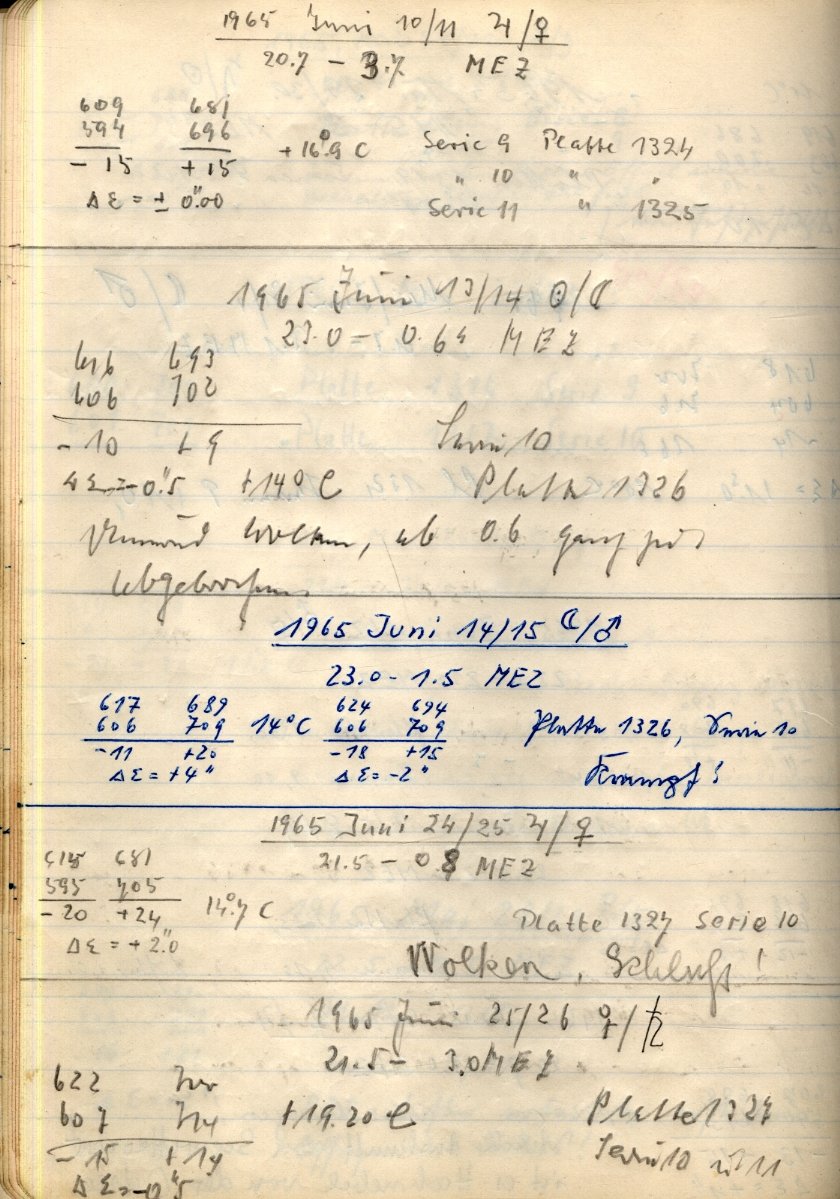 1965 Juni 10/11 ♃/♀
20.7 – 3.7 MEZ
609 681
594 696 +16°.9 C Serie 9 Platte 1324
– 15 +15 " 10 " "
Δ Σ = ± 0".00 Serie 11 " 1325
1965 Juni 13/14 ☉/☾
23.0 – 0.64 MEZ
616 693
606 702
– 10 + 9 Serie 10
Δ Σ = – 0".5 +14° C Platte 1326
Wolken, ab 0.6 ganz
abgebrochen.
1965 Juni 14/15 ☾/♂
23.0 – 1.5 MEZ
617 689 624 694
606 709 14°C 606 709 Platte 1326, Serie 10
–11 +20 –18 +15
Δ Σ = +4" Δ Σ = –2" Krampf!
1965 Juni 24/25 ♃/♀
21.5 – 0.8 MEZ
615 681
595 705
– 20 +24 14°.7 C Platte 1327 Serie 10
Δ Σ = + 2".0
Wolken, Schluß!
1965 Juni 25/26 ♀/♄
21.5 – 3.0 MEZ
622 700
607 714 +19.20 C Platte 1327
– 15 + 14 Serie 10 11
Δ Σ = – 0".5